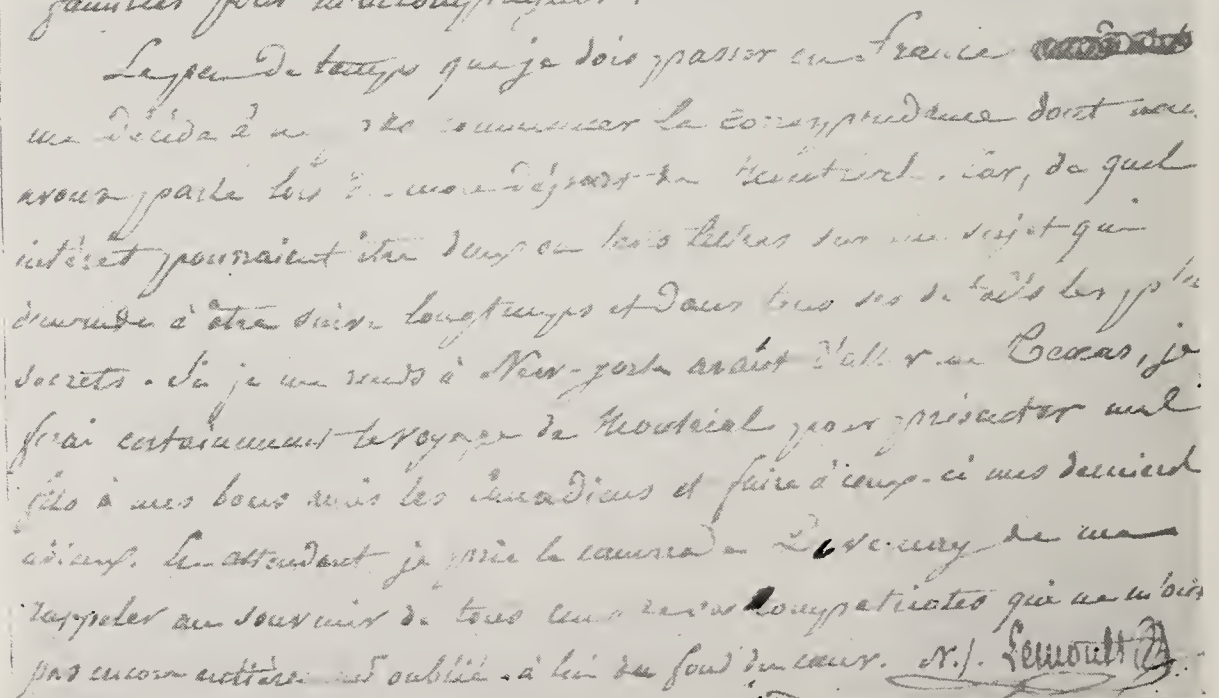 familles pour m'accompagner.
Le peu de temps que je dois passer en France
me décide à ne pas commencer la correspondance dont nous
avons parlé lors de mon départ de Montréal. Car, de quel
intérêt pourraient être deux ou trois lettres sur un sujet qui
demande à être suivi longtemps et dans tous ses détails les plus
secrets. Si je me rends à New-York avant d'aller au Texas, je
ferai certainement le voyage de Montréal pour présenter mes
fils à mes bons amis les Canadiens et faire à ceux-ci mes derniers
adieux. En attendant je prie le camarade de me
rappeler au souvenir de tous compatriotes qui ne m'ont
pas encore entièrement oublié. à lui du fond du cœur. N. J. Lemoult